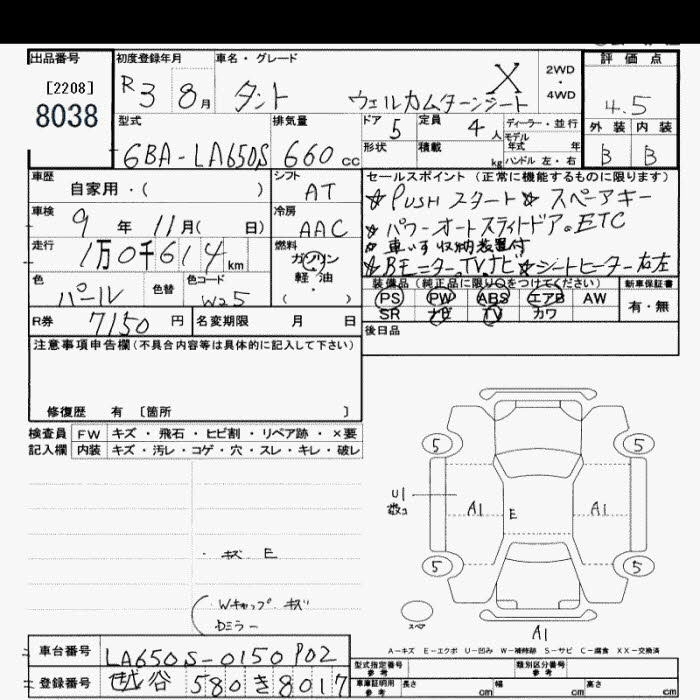 出品番号 初度登録年月 車名・グレード 評価点
[2208]
8038
R3 8月 タント ウェルカムターンシート X 2WD・4WD 4.5
型式 排気量 ドア 5 定員 4人 ディーラー・並行 外装 内装
6BA-LA650S 660cc 形状 積載 kg モデル年式 年 ハンドル 左・右 B B
車歴 自家用・( ) シフト AT セールスポイント(正常に機能するものに限ります)
☆PUSHスタート☆スペアキー
車検 9年 11月( 日) 冷房 AAC ☆パワーオートスライドドア。ETC
走行 1万0千614km 燃料 ガソリン 軽・油 ( ) ☆車いす収納装置付
☆Bモニター、TV、ナビ☆シートヒーター右左
色 パール 色替 色コード W25 装備品(純正品に限り○をつけてください) 新車保証書
PS PW ABS エアB AW 有・無
R券 7150円 名変期限 月 日 SR ナビ TV カワ
後日品
注意事項申告欄(不具合内容等は具体的に記入して下さい)
修復歴 有 [箇所 ]
検査員 FW キズ・飛石・ヒビ割・リペア跡・×要
記入欄 内装 キズ・汚レ・コゲ・穴・スレ・キレ・破レ
5 5
U1
数コ A1 E A1
・キズ E
5 5
Wキャップ キズ
Dミラー
スペア
A1
A-キズ E-エクボ U-凹み W-補修跡 S-サビ C-腐食 XX-交換済
車台番号 LA650S-0150P02 型式指定番号 参考 類別区分番号 参考
登録番号 越谷 580 き 8017 車庫証明用 参考 長さ cm 幅 cm 高さ cm